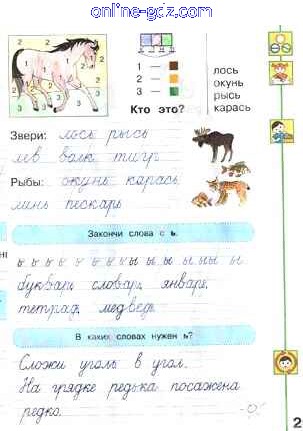 online-gdz.com
2 2 2
1 —
2 —
3 —
лось
окунь
рысь
карась
Кто это?
Звери: лось рысь
лев волк тигр
Рыбы: окунь карась
линь пескарь
Закончи слова с ь.
ь ь ь ь ь ь ь ь ы ы ы ы ы ы ы
букварь словарь январь
тетрадь медведь
В каких словах нужен ь?
Сложи уголь в угол.
На грядке редька посажена
редко.
2